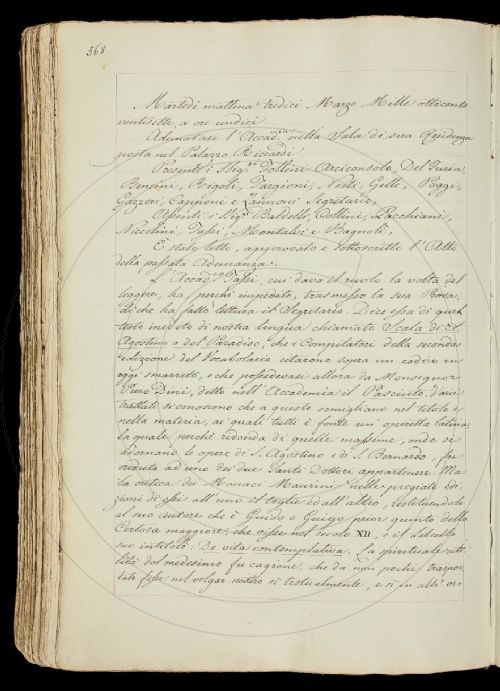 568
Martedì mattina tredici Marzo Mille ottocento
ventisette, a ore undici
Adunatasi l'Accad.ia nella Sala di sua Residenza
posta nel Palazzo Riccardi
Presenti i Sig.ri Follini Arciconsolo, Del Furia,
Bencini, Rigoli, Targioni, Nesti, Gelli, Poggi,
Gazzeri, Capponi e Zannoni Segretario,
Assenti i Sig.ri Baldelli, Collini, Pacchiani,
Niccolini, Tassi, Montalvi e Bagnoli,
È stato letto, approvato e sottoscritto l'Atto
della passata Adunanza.
L'Accad.co Tassi, cui dava il ruolo la volta del
leggere, ha, perchè impedito, trasmesso la sua
di che ha fatto lettura il Segretario. Dice essa di quel
testo inedito di nostra lingua chiamato Scala di S.
Agostino o del Paradiso, che i Compilatori della seconda
edizione del Vocabolario citarono sopra un codice in
oggi smarrito, e che possedevasi allora da Monsignor
Piero Dini, detto nell'Accademia il Pasciuto. Varii
trattati si conoscono che a questo somigliano nel titolo e
nella materia, ai quali tutti è fonte un'operetta latina,
la quale perchè ridonda di quelle massime, onde si
adornano le opere di S. Agostino e di S. Bernardo, fu
creduta ad uno dei due Santi Dottori appartenere. Ma
la critica dei Monaci Maurini nelle pregiate edi-
zioni di essi all'uno il toglie ed all'altro, restituendolo
al suo autore che è Guido o Guigo prior quinto della
Certosa maggiore, che visse nel secolo XII, e il Libretto
suo intitolò: De vita contemplativa. La spirituale uti-
lità del medesimo fu cagione, che da non pochi traspor-
tato fosse nel volgar nostro sì testualmente, e sì in altr' or-